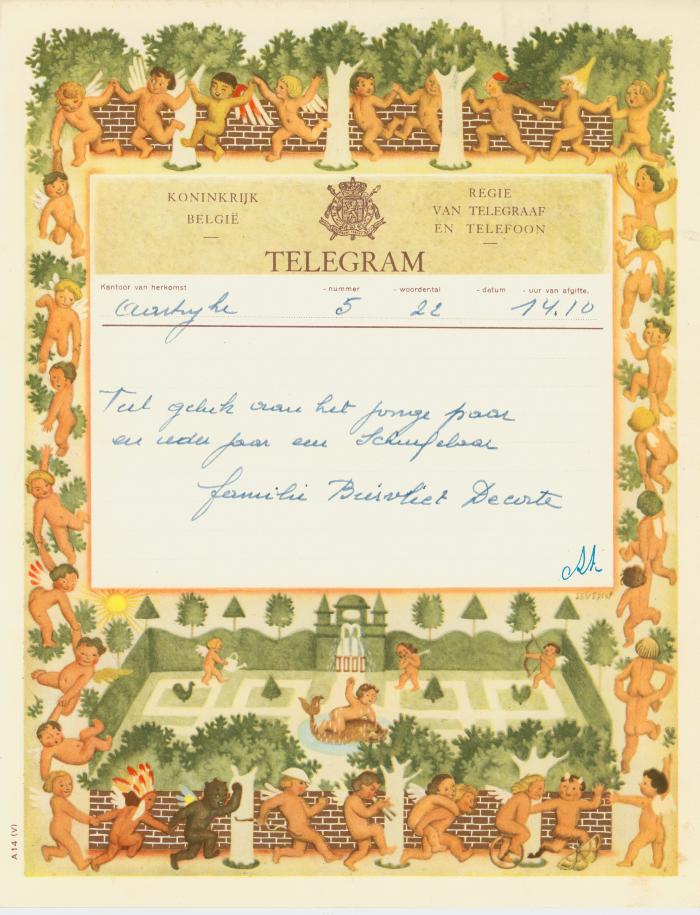 KONINKRIJK
BELGIË
REGIE
VAN TELEGRAAF
EN TELEFOON
TELEGRAM
Kantoor van herkomst - nummer - woordental - datum - uur van afgifte.
5 22 14.10
geluk aan het jonge paar
en ieder jaar een
familie Decorte
A 14 (V)